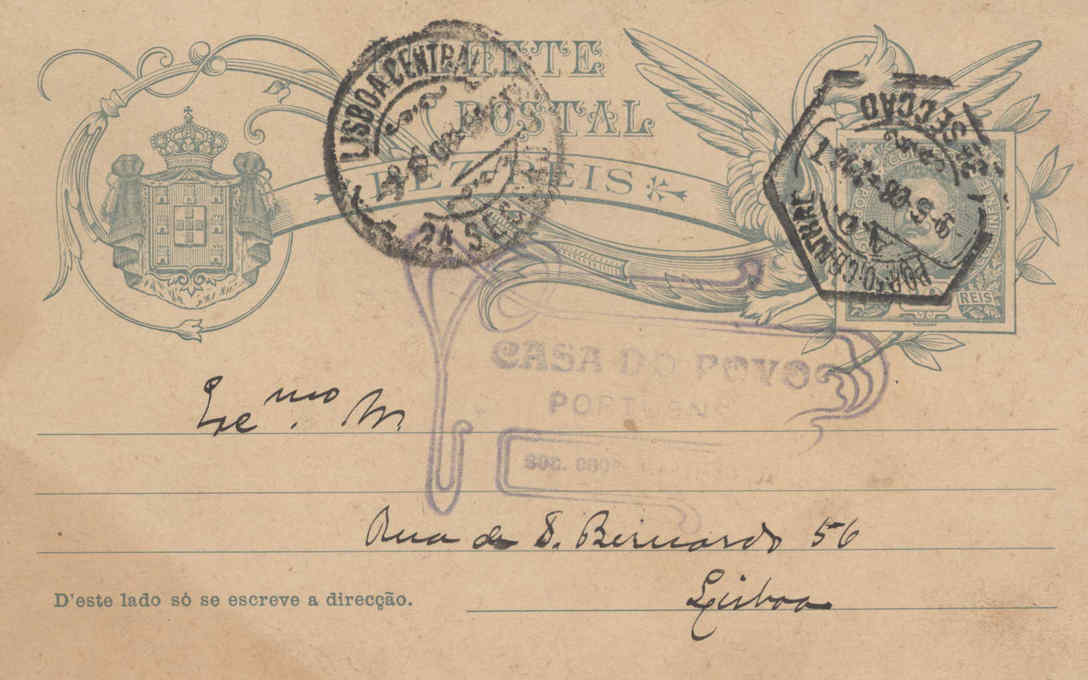 POSTAL
DEZ REIS
LISBOA CENTRAL
PORTO CENTRAL
SECÇÃO
REIS
CASA DO POVO
PORTUENSE
Exc.mo Sr.
Rua de S. Bernardo 56
Lisboa
D'este lado só se escreve a direcção.